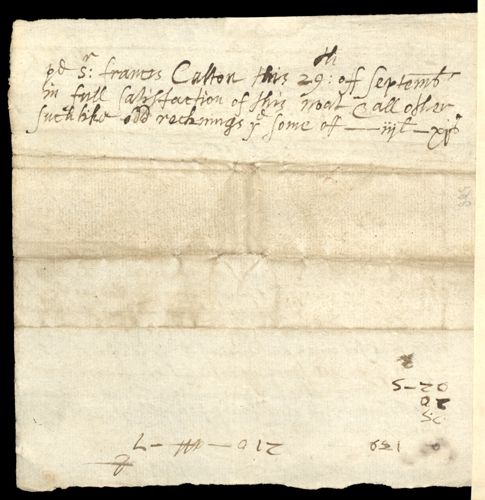 pd Sr: frances Calton this 29th: of Septemb
in full satisfaction of this noat & all other
suchlike odd recknings ye some of — iijl — xijs
02-5
20
139
210